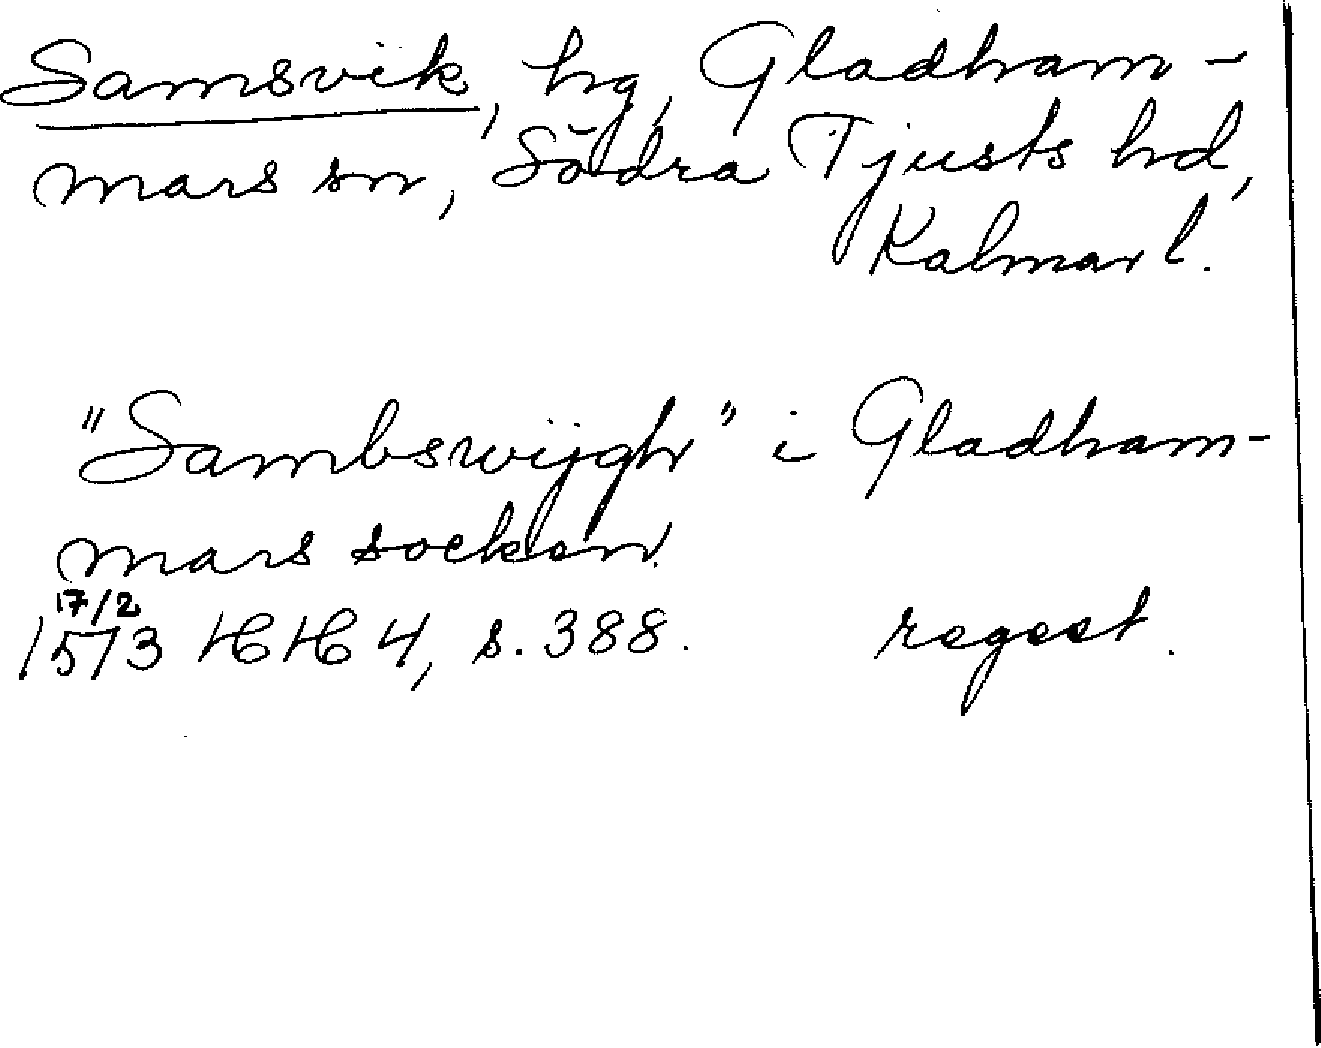 Samsvik, hg, Gladham-
mars sn, Södra Tjusts hd,
Kalmar l.
"Sambswijgh" i Gladham-
mars socken.
17/2
1573 HH 4, s. 388. regest.